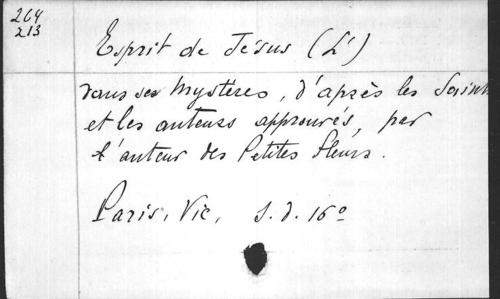 264
213
Esprit de Jésus (L')
dans ses Mystères, d'après les Saints
et les auteurs approuvés, par
l'auteur des Petites Fleurs.
Paris, Vic, s.d. 16º